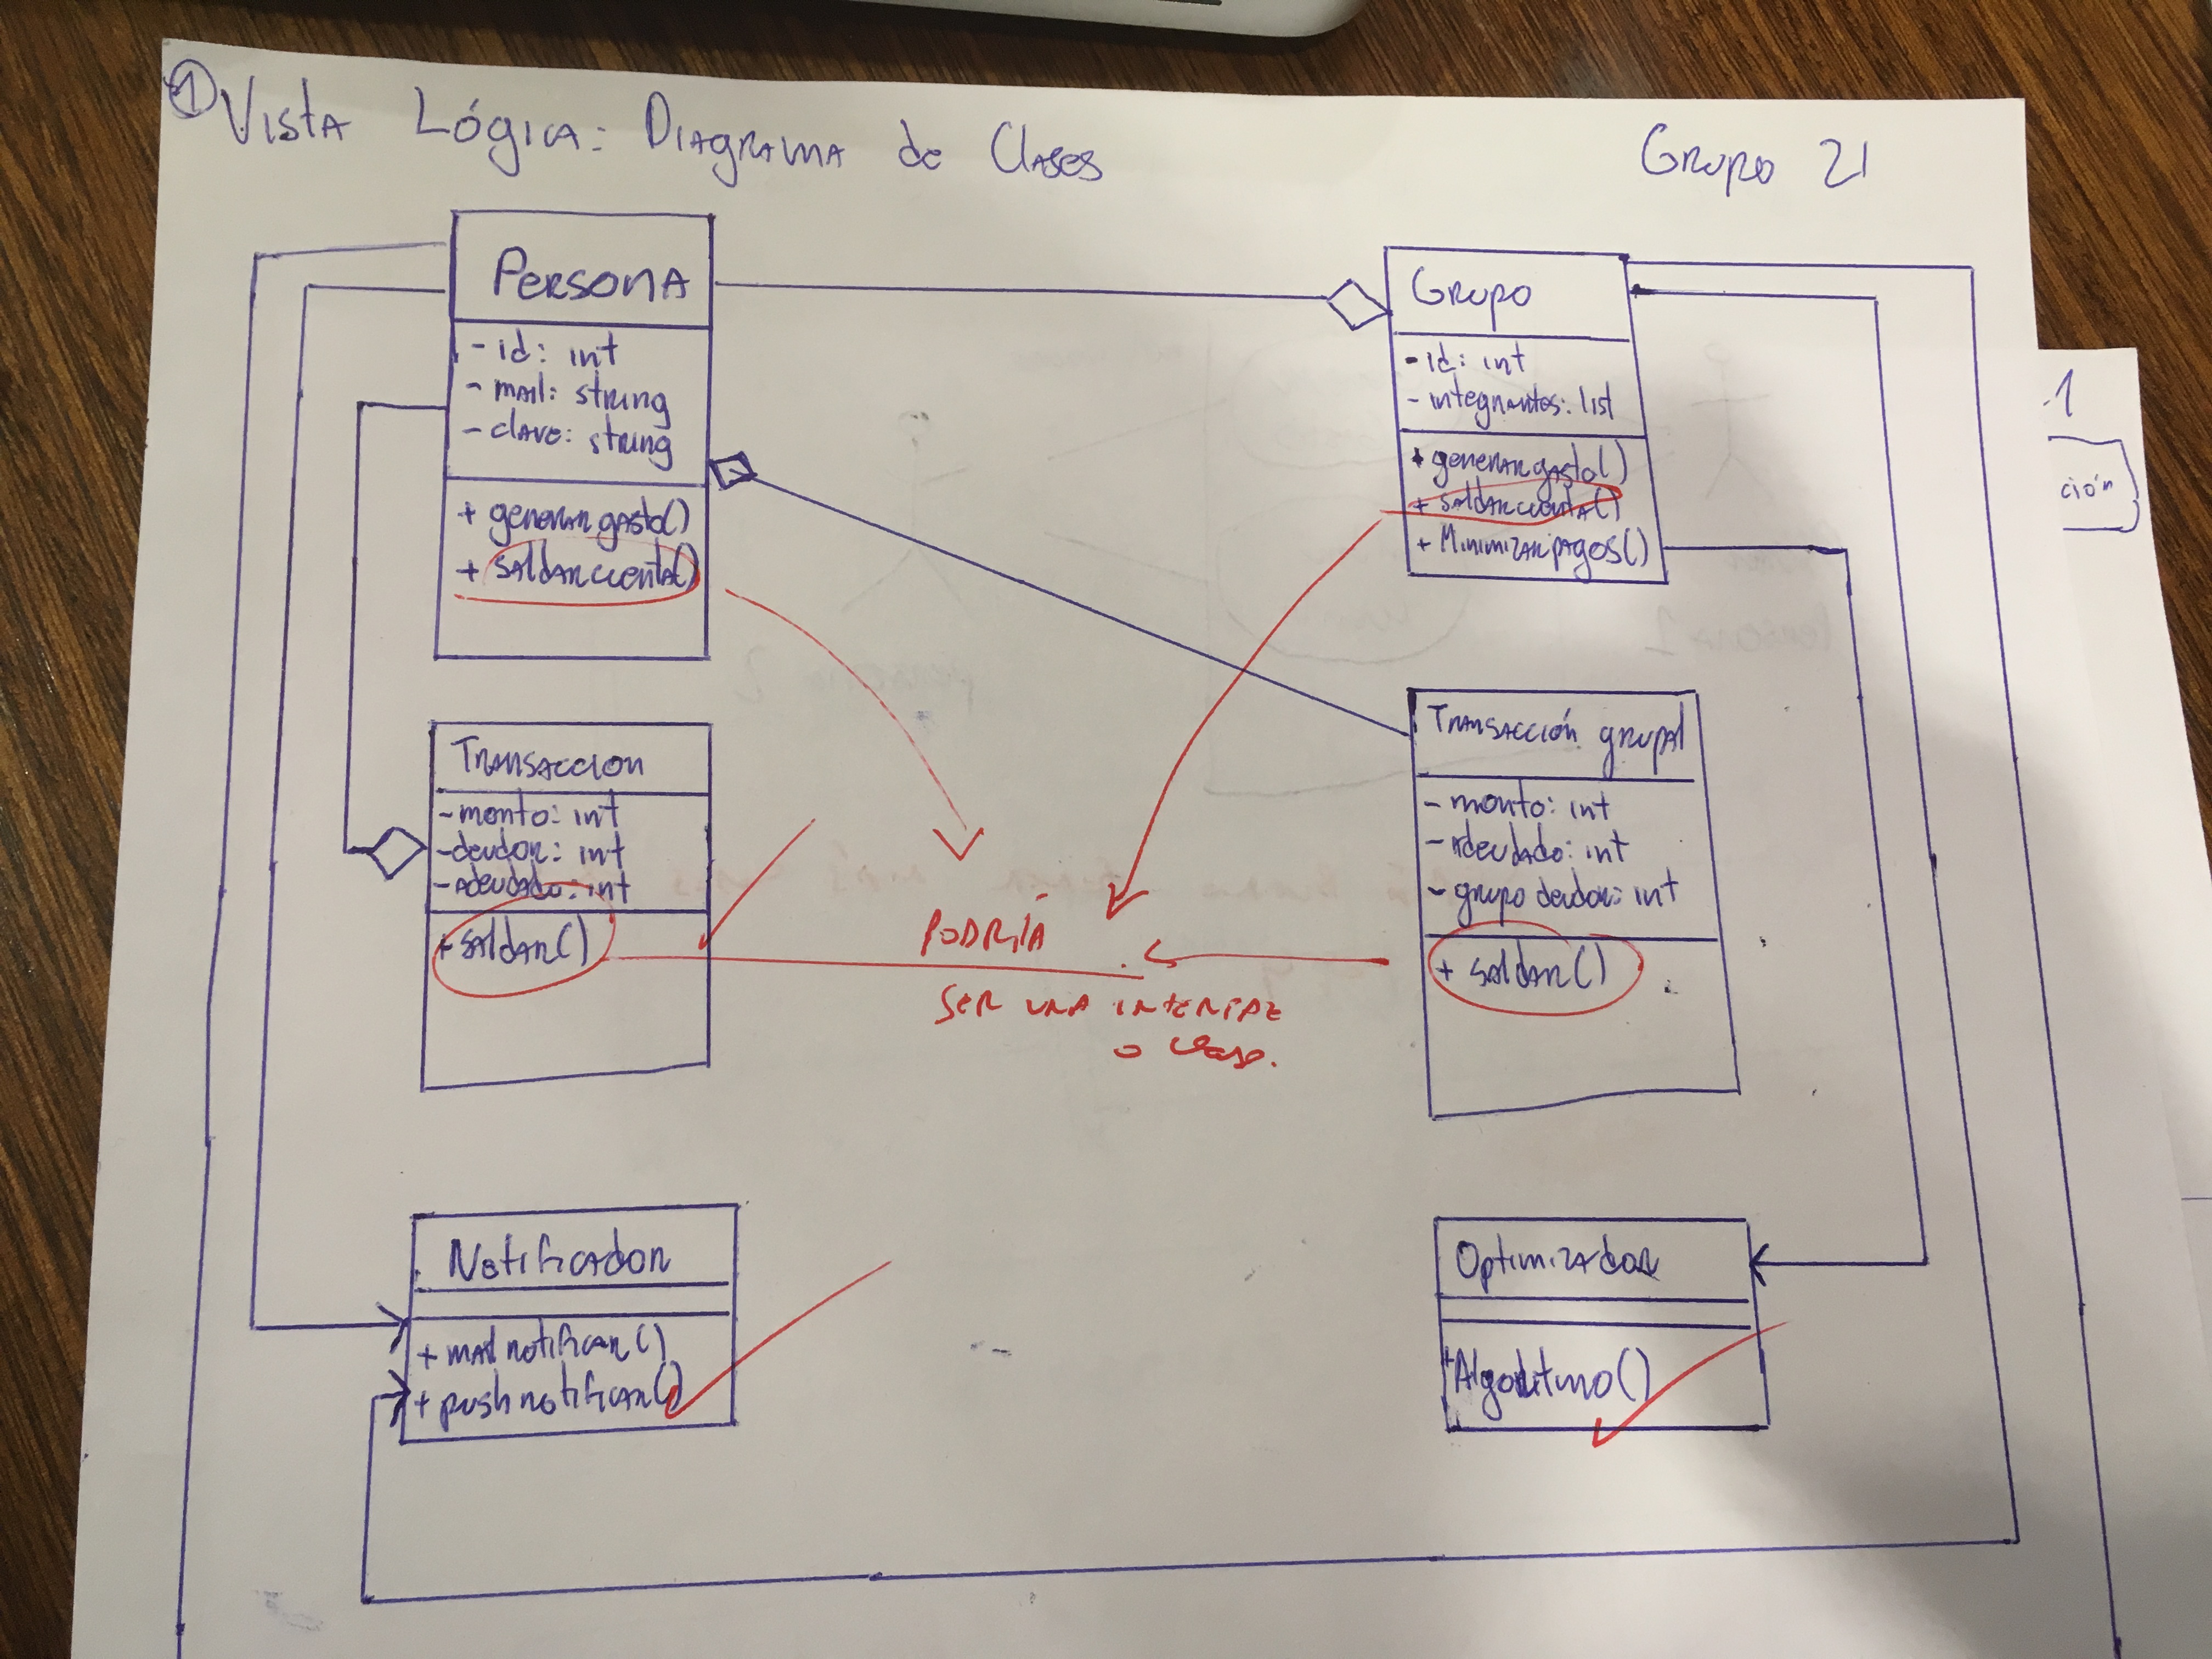 ① Vista Lógica: Diagrama de Clases
Grupo 21
Persona
- id: int
- mail: string
- clave: string
+ generargasto()
+ saldarcuenta()
Grupo
- id: int
- integrantes: list
+ generargasto()
+ saldarcuenta()
+ Minimizarpagos()
Transaccion
- monto: int
- deudor: int
- adeudado: int
+ saldar()
Transacción grupal
- monto: int
- adeudado: int
- grupo deudor: int
+ saldar()
PODRÍA
SER UNA INTERFAZ
o clase.
Notificador
+ mail notificar()
+ push notificar()
Optimizador
+Algoritmo()
1
ción